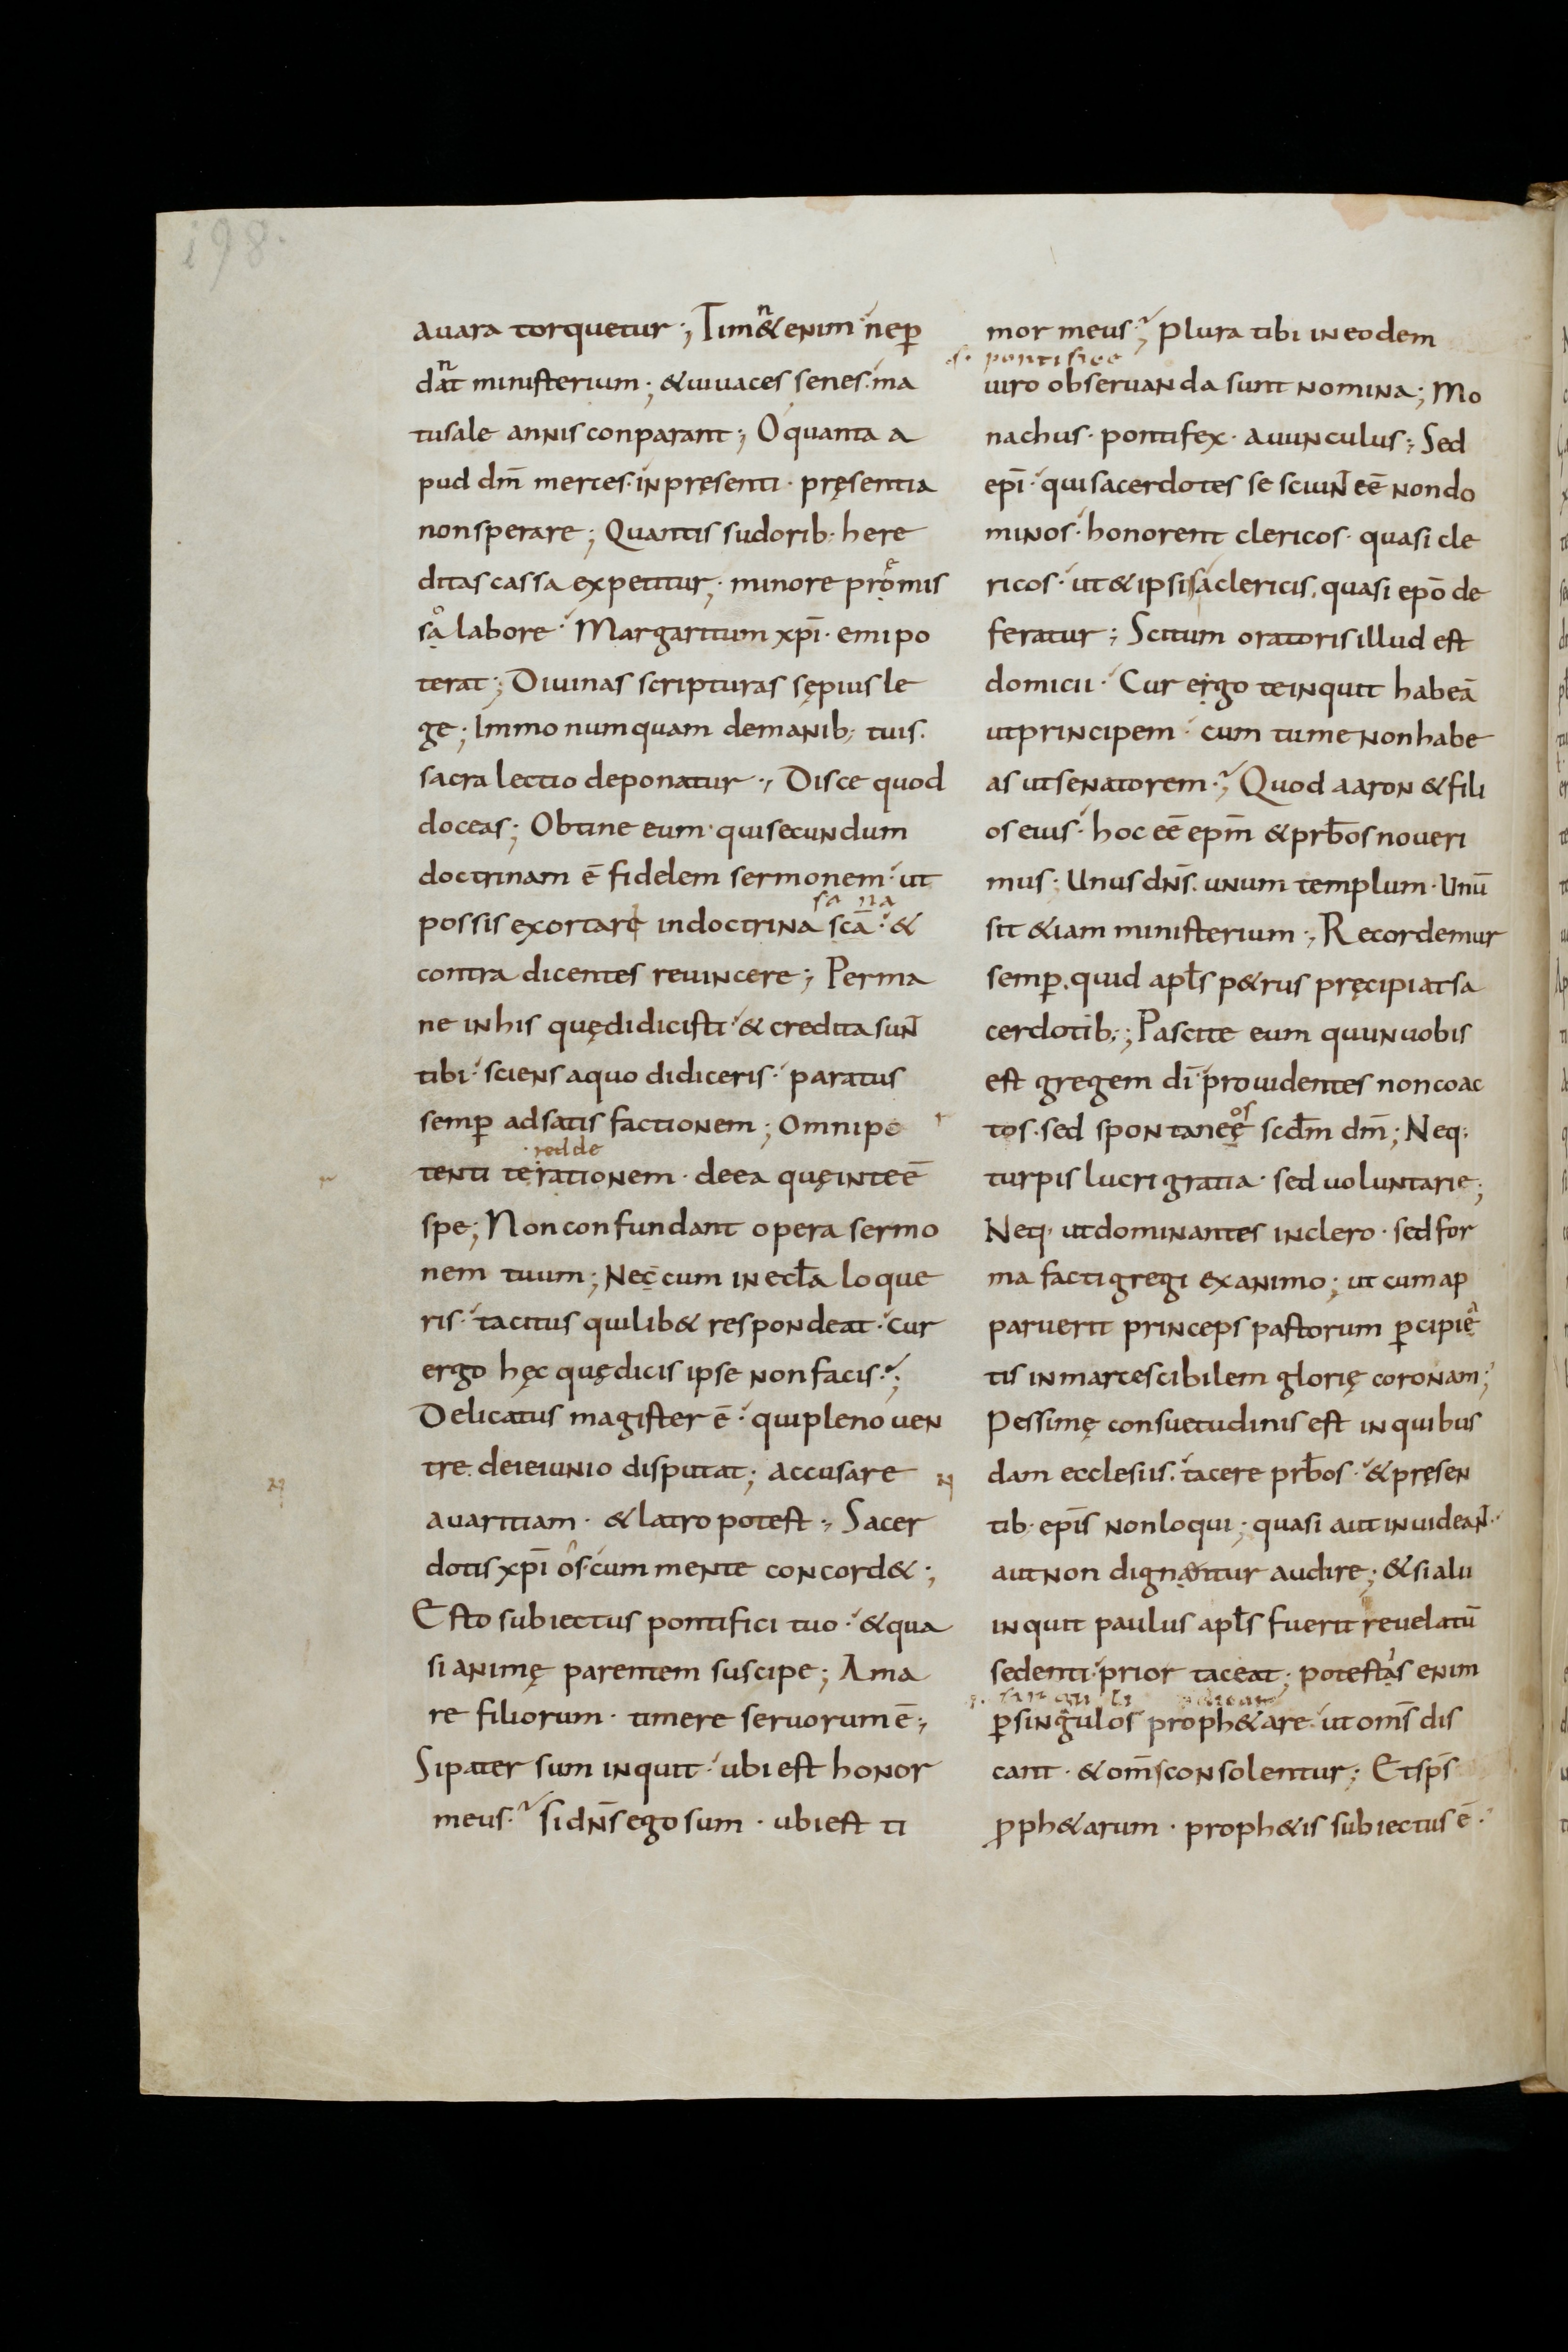 198.
auara torquetur ; Tim&enim ne ꝑ
n
dat ministerium ; & uiuaces senes · ma
n
tusale annis conparant ; O quanta a
pud dm̄ merces · in pręsenti · pręsentia
non sperare ; Quantis sudorib· here
ditas cassa expetitur ; minore promis
e
sa labore · Margaritum xp̄i · emi po
o
terat ; Diuinas scripturas sępius le
ge ; Immo numquam de manib; tuis ·
sacra lectio deponatur ·, Disce quod
doceas ; Obtine eum · qui secundum
doctrinam ē fidelem sermonem · ut
sa na
possis exortare in doctrina scā · &
contra dicentes reuincere ; Perma
ne in his quę didicisti · & credita sunt
tibi · sciens a quo didiceris · paratus
semꝑ ad satis factionem ; Omnipo
redde
tenti te rationem · de ea quę in te ē
spe ; Non confundant opera sermo
nem tuum ; Nec cum in eccl̄a loque
ris · tacitus quilib& respondeat · cur
ergo hęc quę dicis ipse non facis ·;
Delicatus magister ē · qui pleno uen
tre · de ieiunio disputat ; accusare
auaritiam · & latro potest ·, Sacer
dotis xp̄i os · cum mente concord& ·,
Esto subiectus pontifici tuo · & qua
si animę parentem suscipe ; Ama
re filiorum · timere seruorum ē ·,
Si pater sum inquit · ubi est honor
meus · si dn̄s ego sum · ubi est ti
mor meus ·; Plura tibi in eodem
s· pontifice
uiro obseruanda sunt nomina ; Mo
nachus · pontifex · auunculus ; Sed
ep̄i · qui sacerdotes se sciunt eē non do
minos · honorent clericos · quasi cle
ricos · ut & ipsis a clericis · quasi epō de
feratur ; Scitum oratoris illud est
domicii · Cur ergo te inquit habeā
ut principem · cum tu me non habe
as ut senatorem ·; Quod aaron & fili
os eius · hoc eē ep̄m & prb̄os noueri
mus ; Unus dn̄s · unum templum · Unū
sit & iam ministerium ·, Recordemur
semꝑ · quid apl̄s p&rus pręcipiat sa
cerdotib; ; Pascite eum qui in uobis
est gregem dī prouidentes non coac
os
tos · sed spontaneę scd̄m dm̄ ; Neq;
turpis lucri gratia · sed uoluntarie ;
Neq· ut dominantes in clero · sed for
ma facti gregi ex animo ; ut cum ap
paruerit princeps pastorum ꝑcipie
a
tis inmarcescibilem glorię coronam ;
Pessimę consuetudinis est in quibus
dam ecclesiis · tacere prb̄os · & pręsen
tib· ep̄is non loqui ; quasi aut inuideant ·
aut non dignantur audire ; & si alii
inquit paulus apl̄s fuerit reuelatū
sedenti · prior taceat ; potestas enim
i
ꝑ singulos proph&are · ut om̄s dis
cant · & om̄s consolentur ; Et sp̄s
ꝓph&arum · proph&is subiectus ē ·